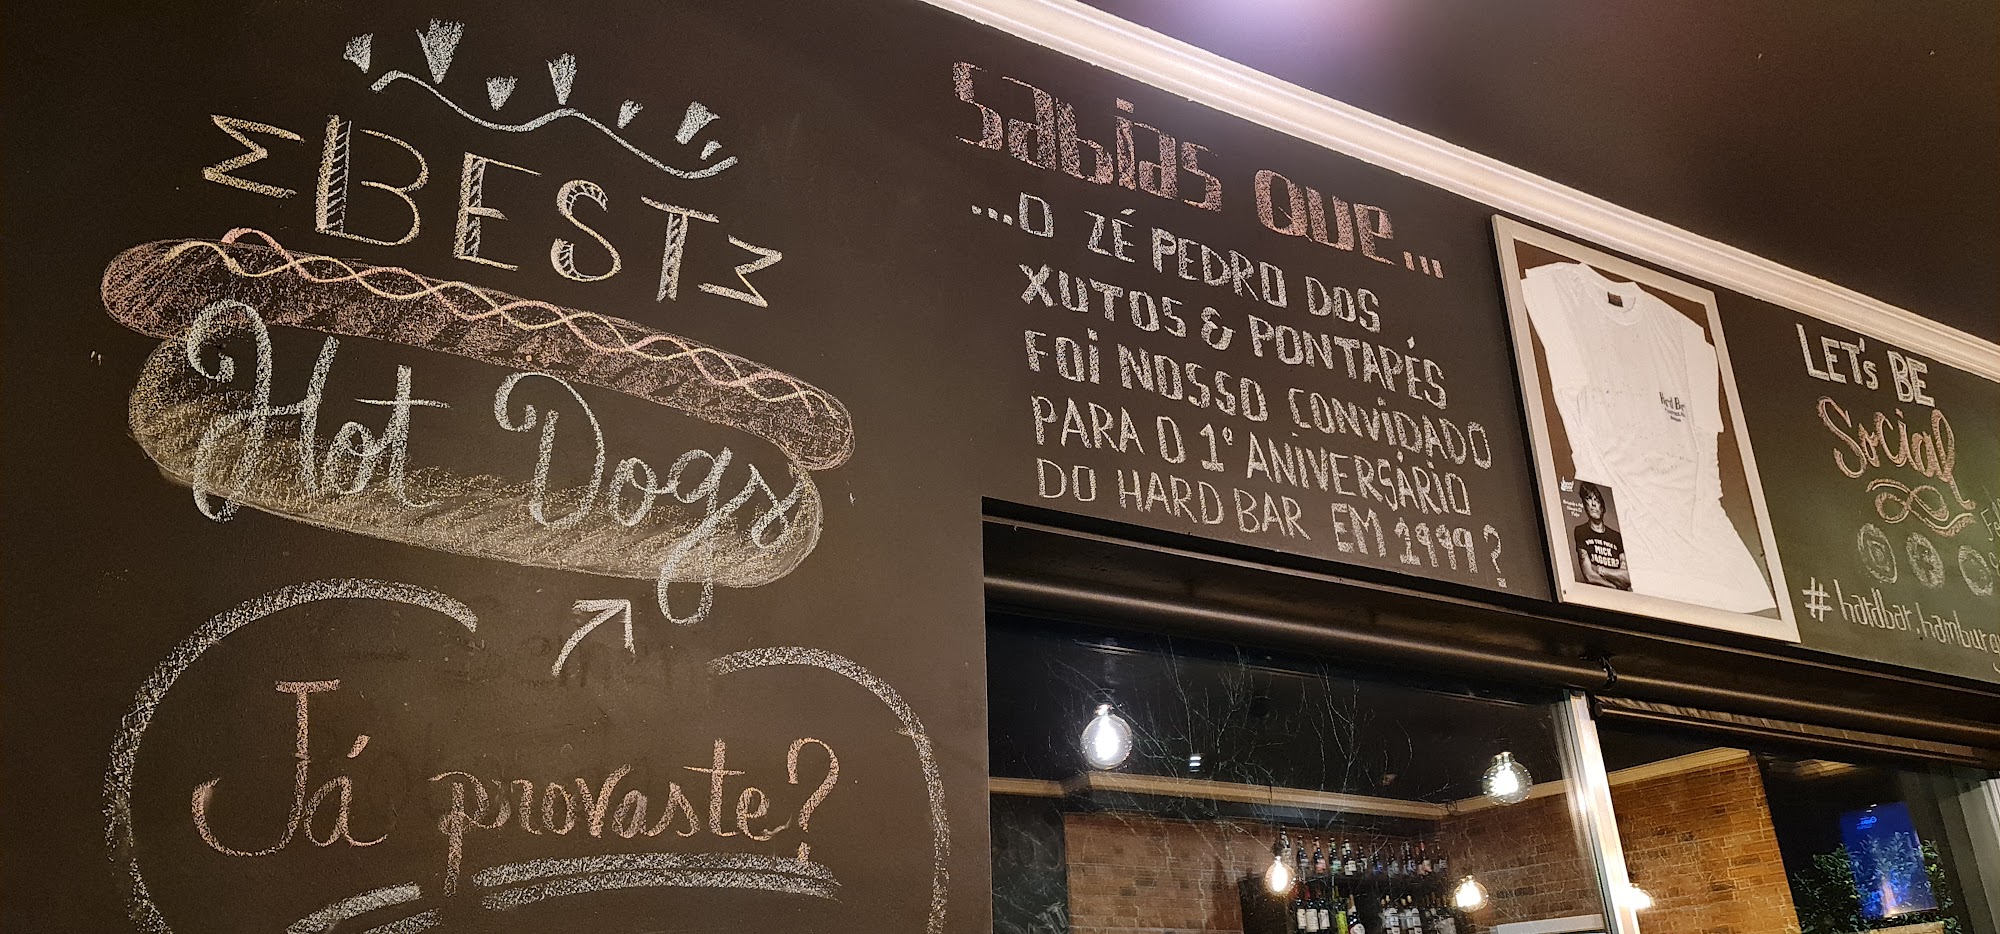 BEST
Hot Dogs
Já provaste?
Sabias que...
...O ZÉ PEDRO DOS
XUTOS & PONTAPÉS
FOI NOSSO CONVIDADO
PARA O 1º ANIVERSÁRIO
DO HARD BAR EM 1999?
MICK
JAGGER?
LET'S BE
Social
#hardbar.hamburg